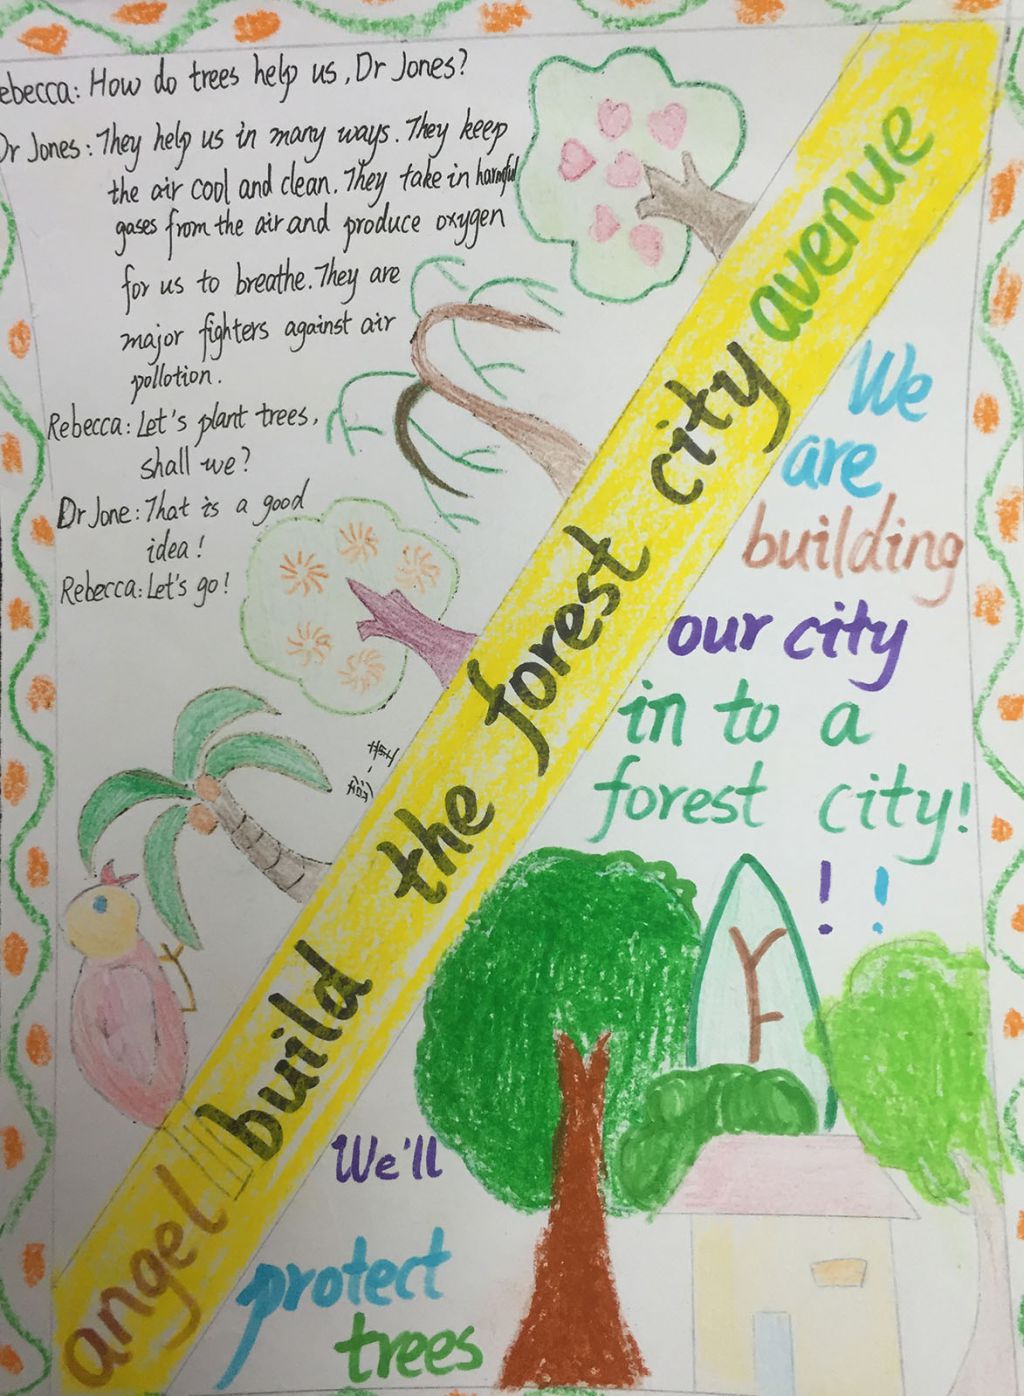 ebecca: How do trees help us, Dr Jones?
Dr Jones: They help us in many ways. They keep
the air cool and clean. They take in harmful
gases from the air and produce oxygen
for us to breathe. They are
major fighters against air
pollotion.
Rebecca: Let's plant trees,
shall we?
Dr Jone: That is a good
idea!
Rebecca: Let's go!
angel build the forest city avenue
We
are
building
our city
in to a
forest city!
! !
We'll
protect
trees